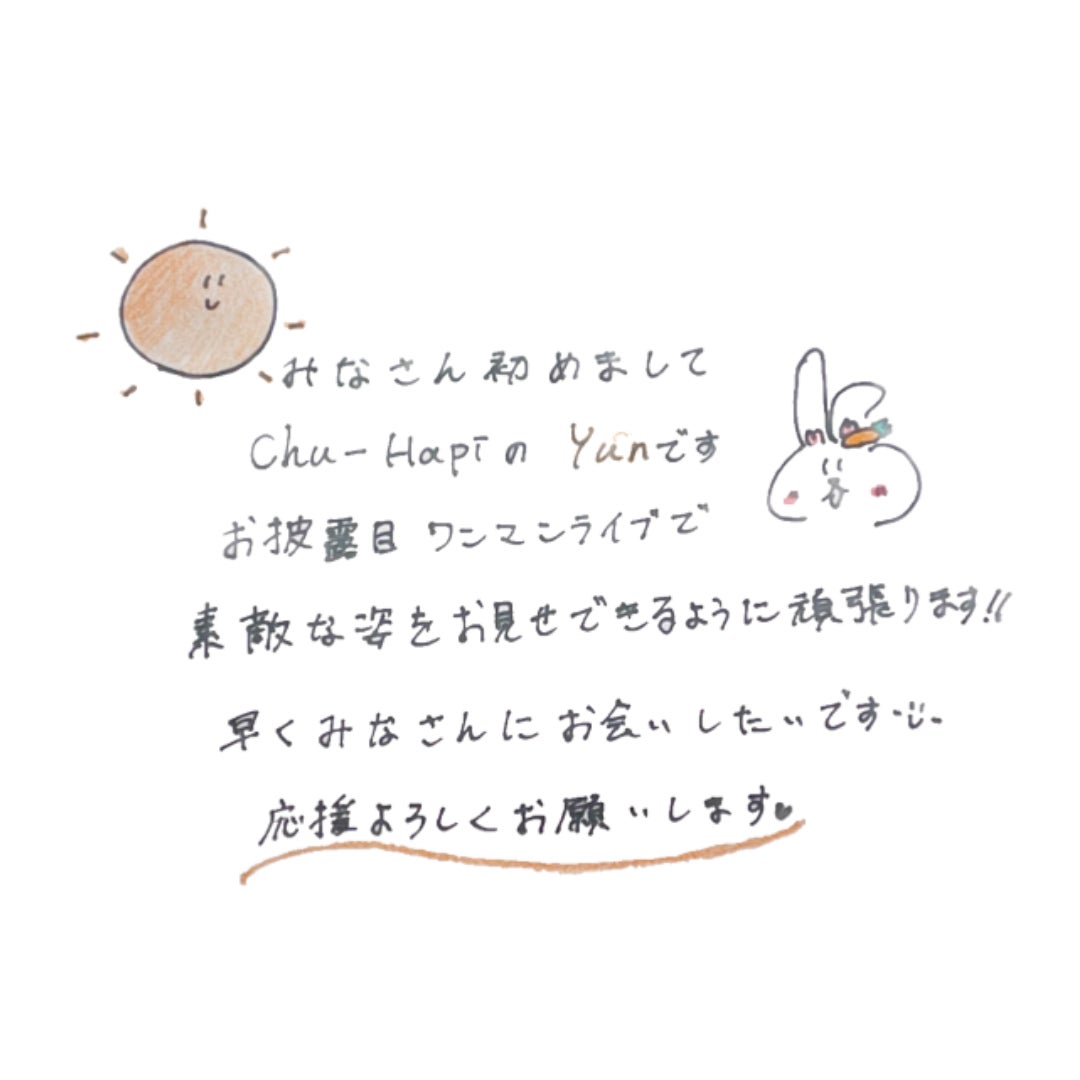 みなさん初めまして
Chu-Hapiの Yunです
お披露目ワンマンライブで
素敵な姿をお見せできるように頑張ります!!
早くみなさんにお会いしたいです
応援よろしくお願いします♥